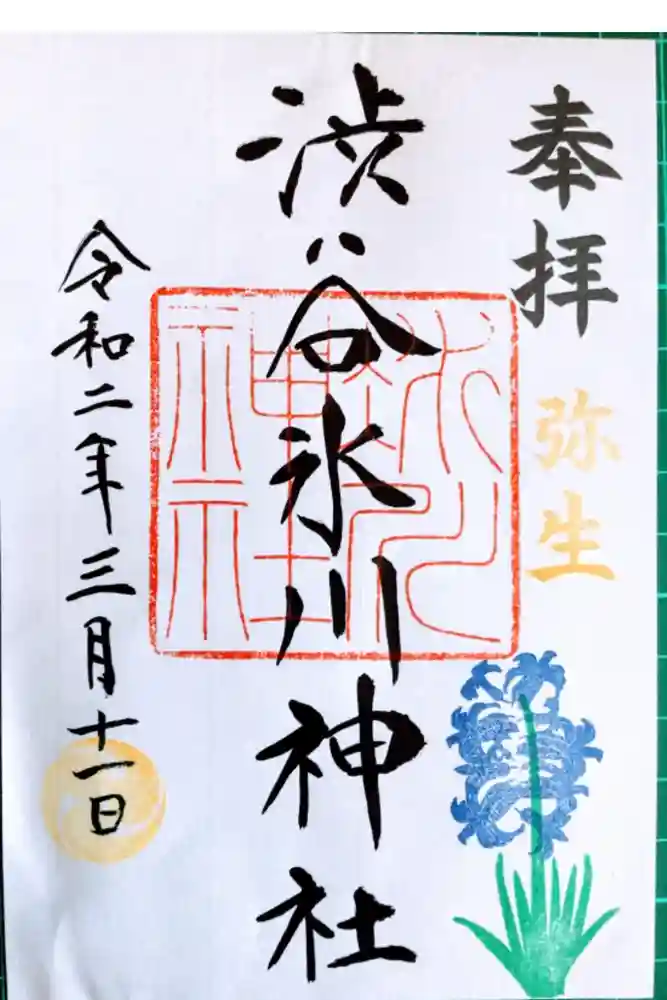 奉拝
弥生
渋谷氷川神社
令和二年三月十一日